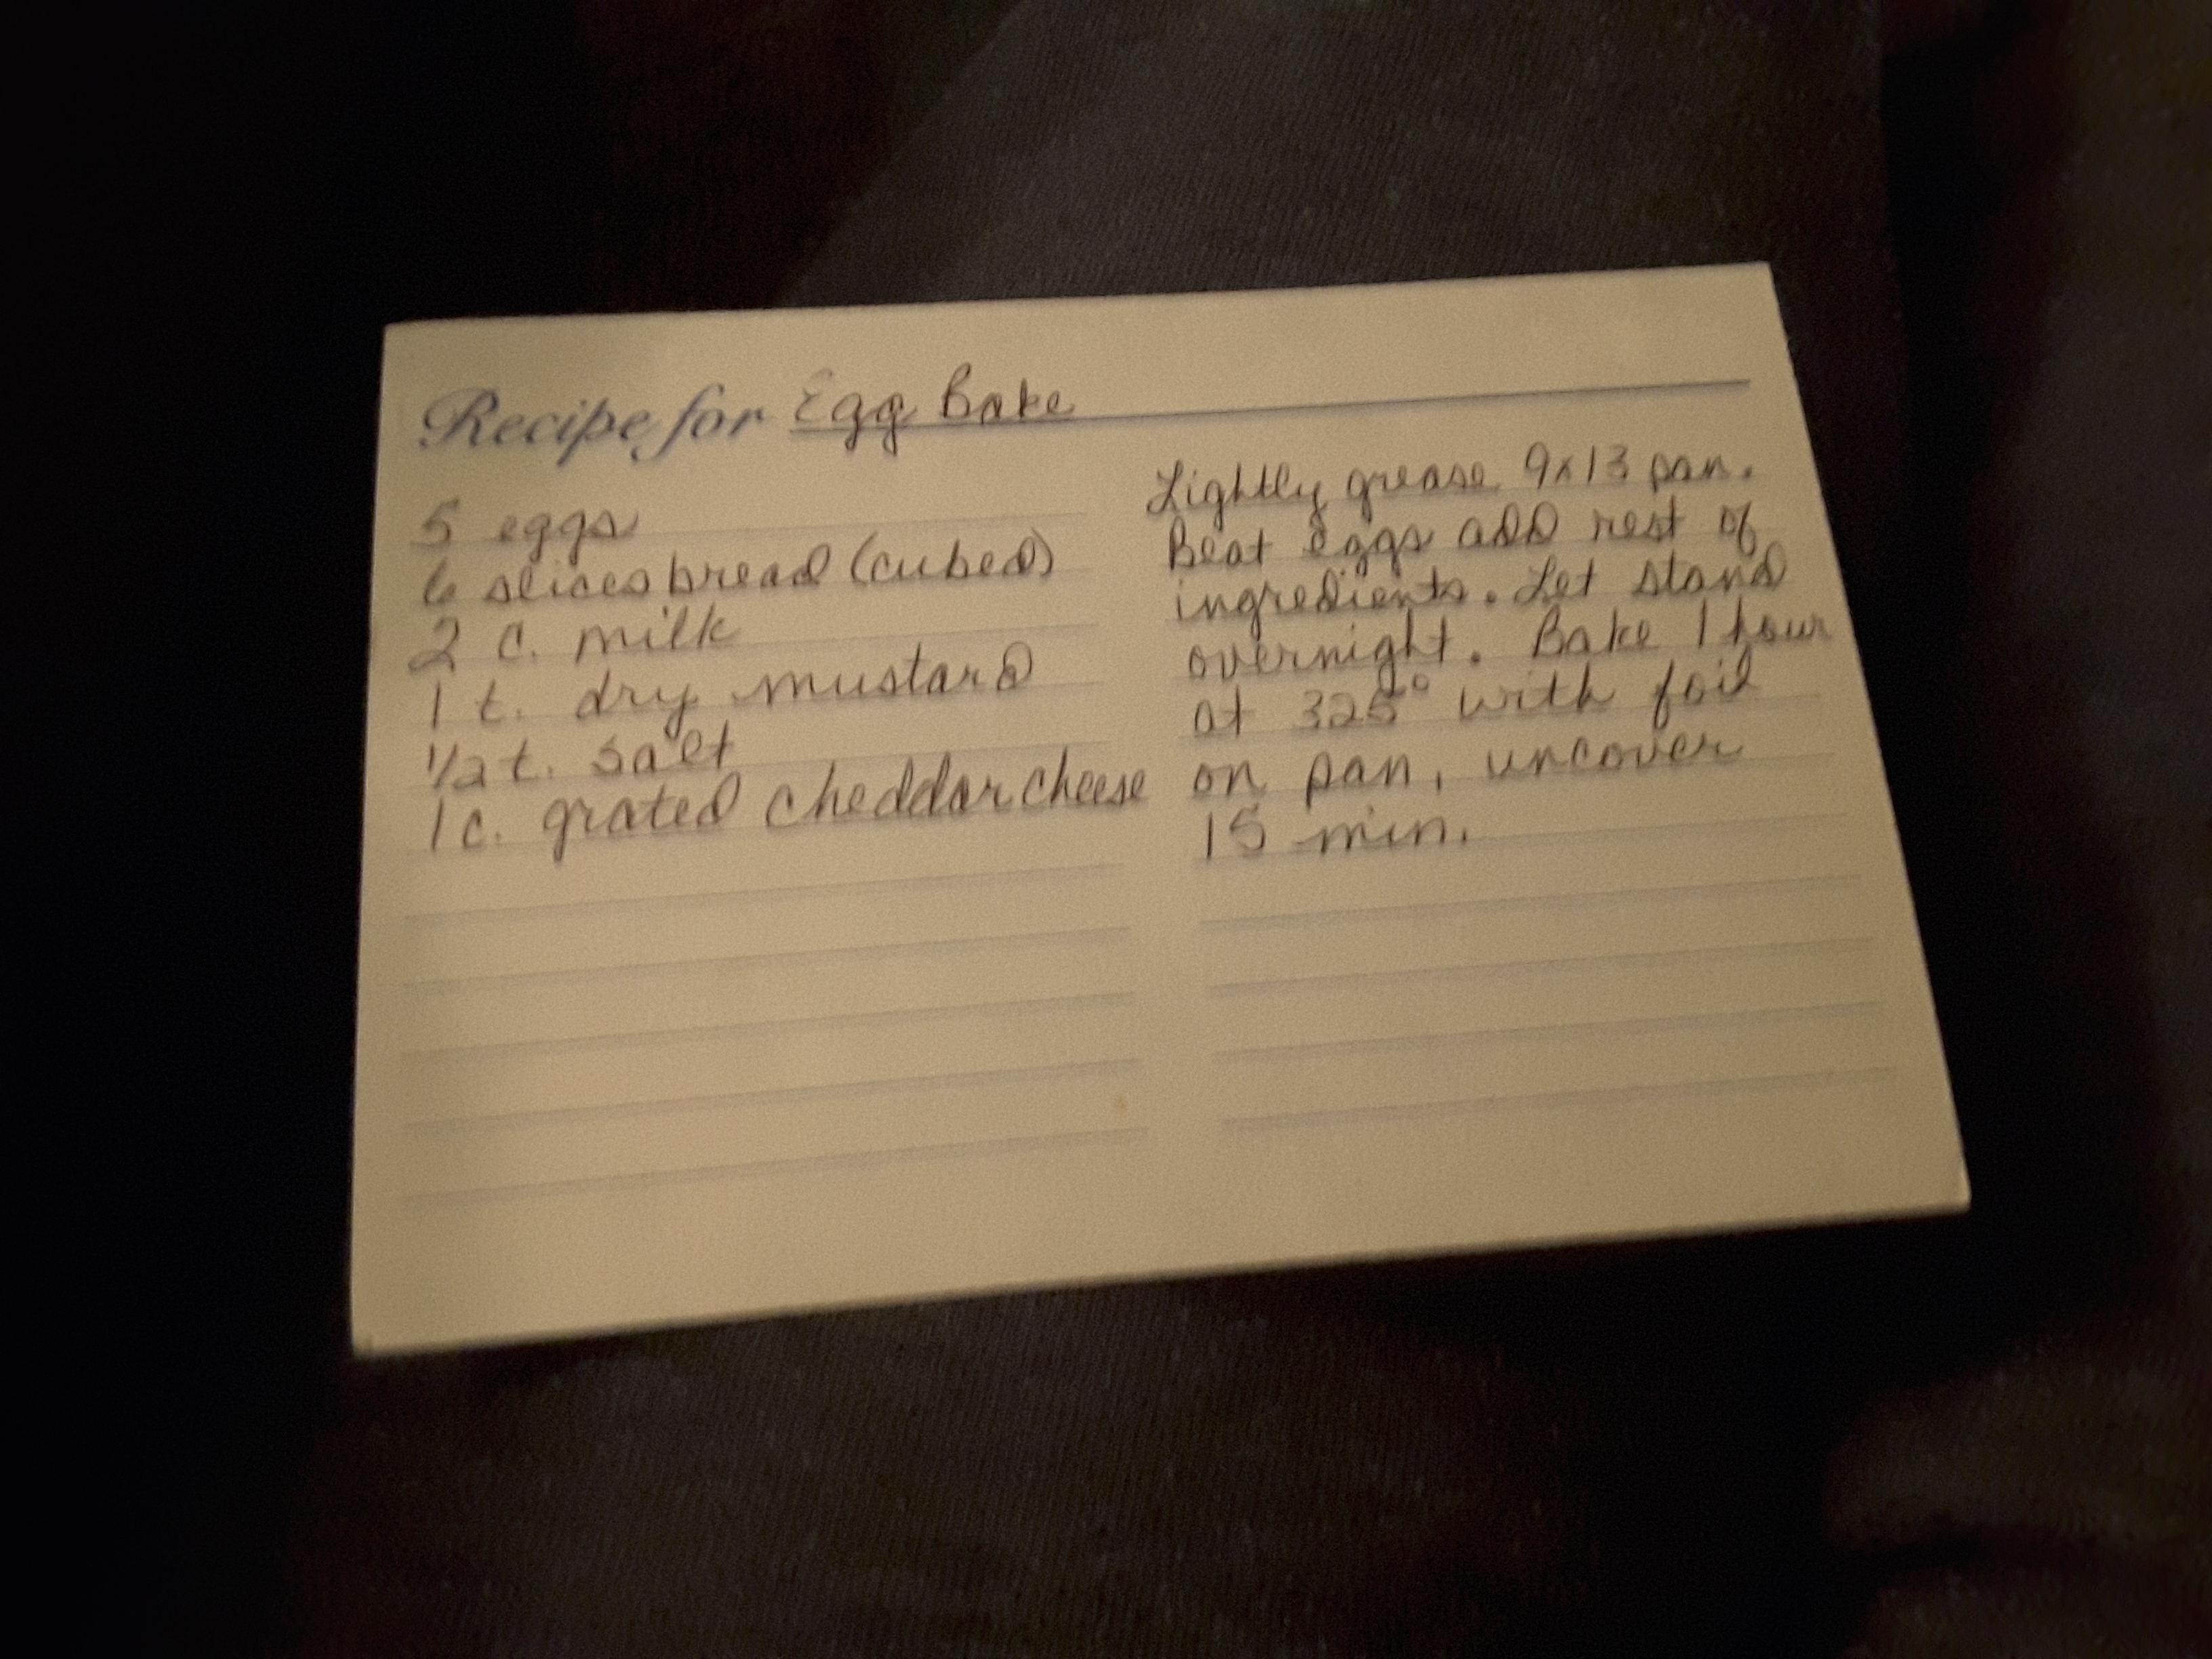 Recipe for Egg Bake
5 eggs
6 slices bread (cubed)
2 c. milk
1 t. dry mustard
1/2 t. salt
1 c. grated cheddar cheese
Lightly grease 9x13 pan.
Beat eggs add rest of
ingredients. Let stand
overnight. Bake 1 hour
at 325° with foil
on pan, uncover
15 min.